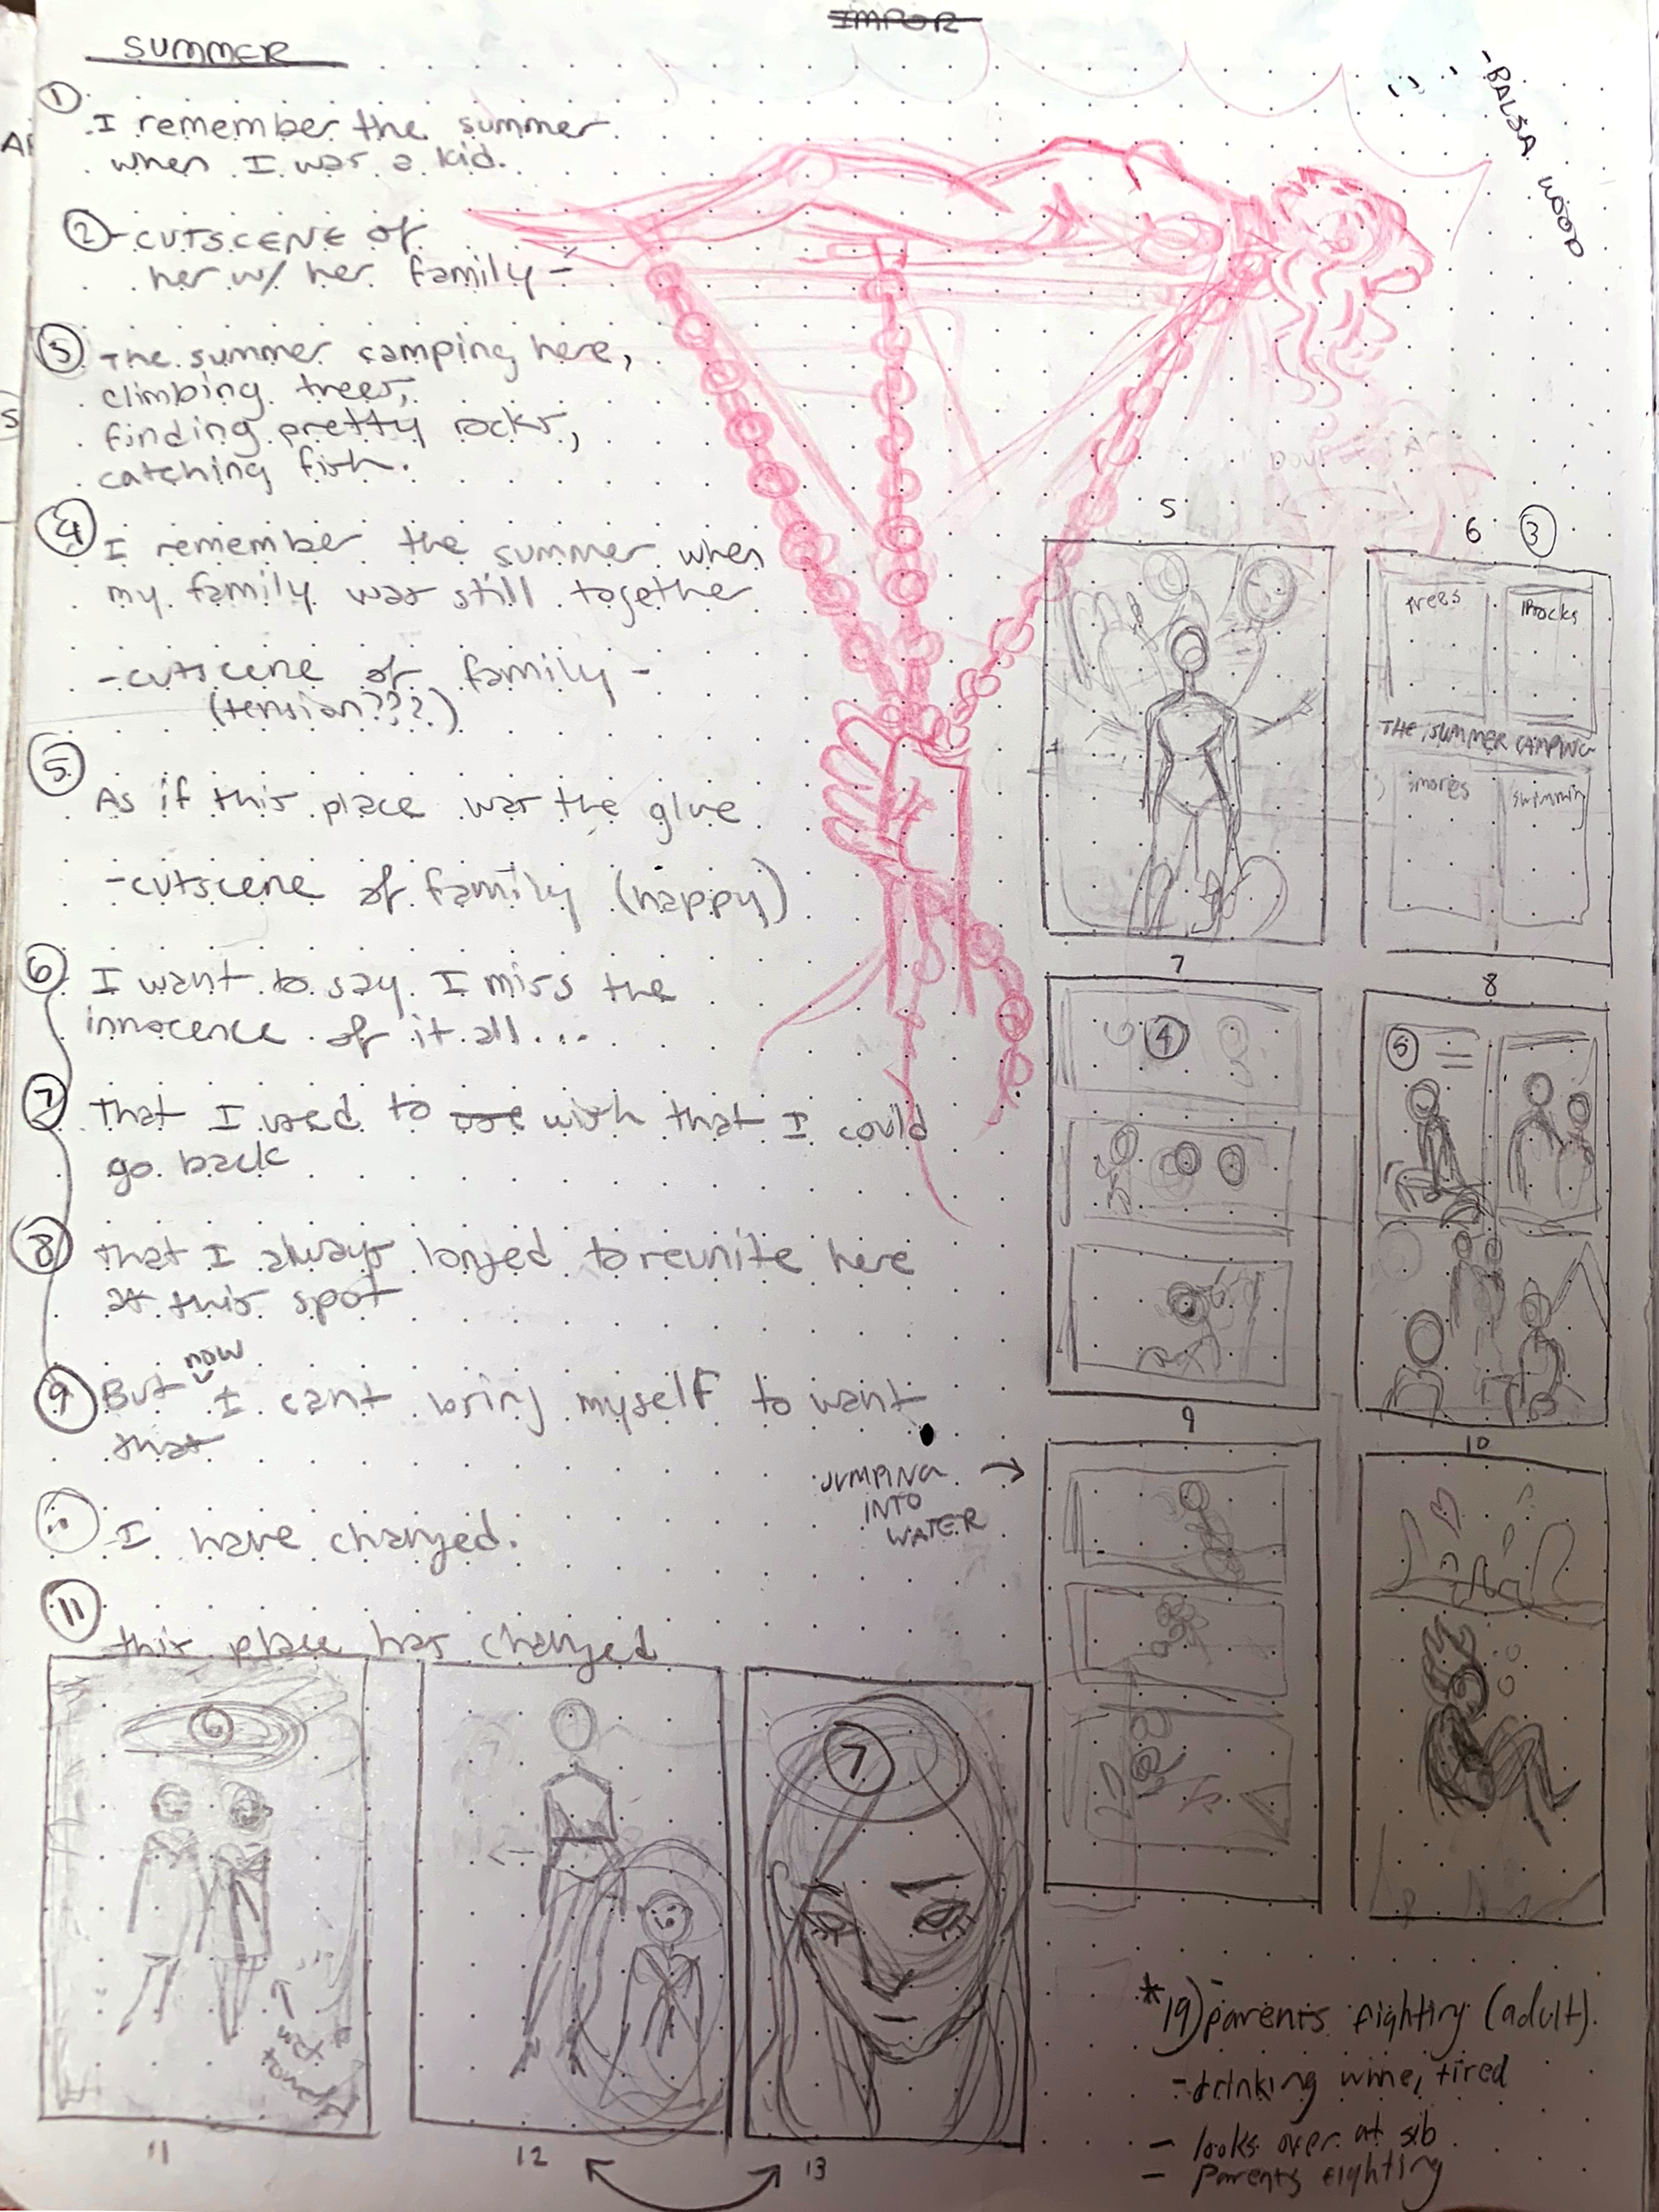 IMPOR
SUMMER
- BALSA WOOD
1
I remember the summer
when I was a kid.
2 - CUTSCENE of
her w/ her family -
3 The summer camping here,
climbing trees,
finding pretty rocks,
catching fish.
4 I remember the summer when
my family was still together
- cutscene of family -
(tension???)
5
As if this place was the glue
- cutscene of family (happy)
6 I want to say I miss the
innocence of it all...
7 That I used to use wish that I could
go back
8 that I always longed to reunite here
at this spot
now
9 But I cant bring myself to want
that
10 I have changed.
11
this place has changed
5
6 3
trees
Rocks
THE SUMMER CAMPING
smores
swimming
7
4
8
5
9
JUMPING →
INTO
WATER
10
6
wet
towels
11
12
7
13
* 19) parents fighting (adult).
- drinking wine, tired
- looks over at sib
- Parents fighting